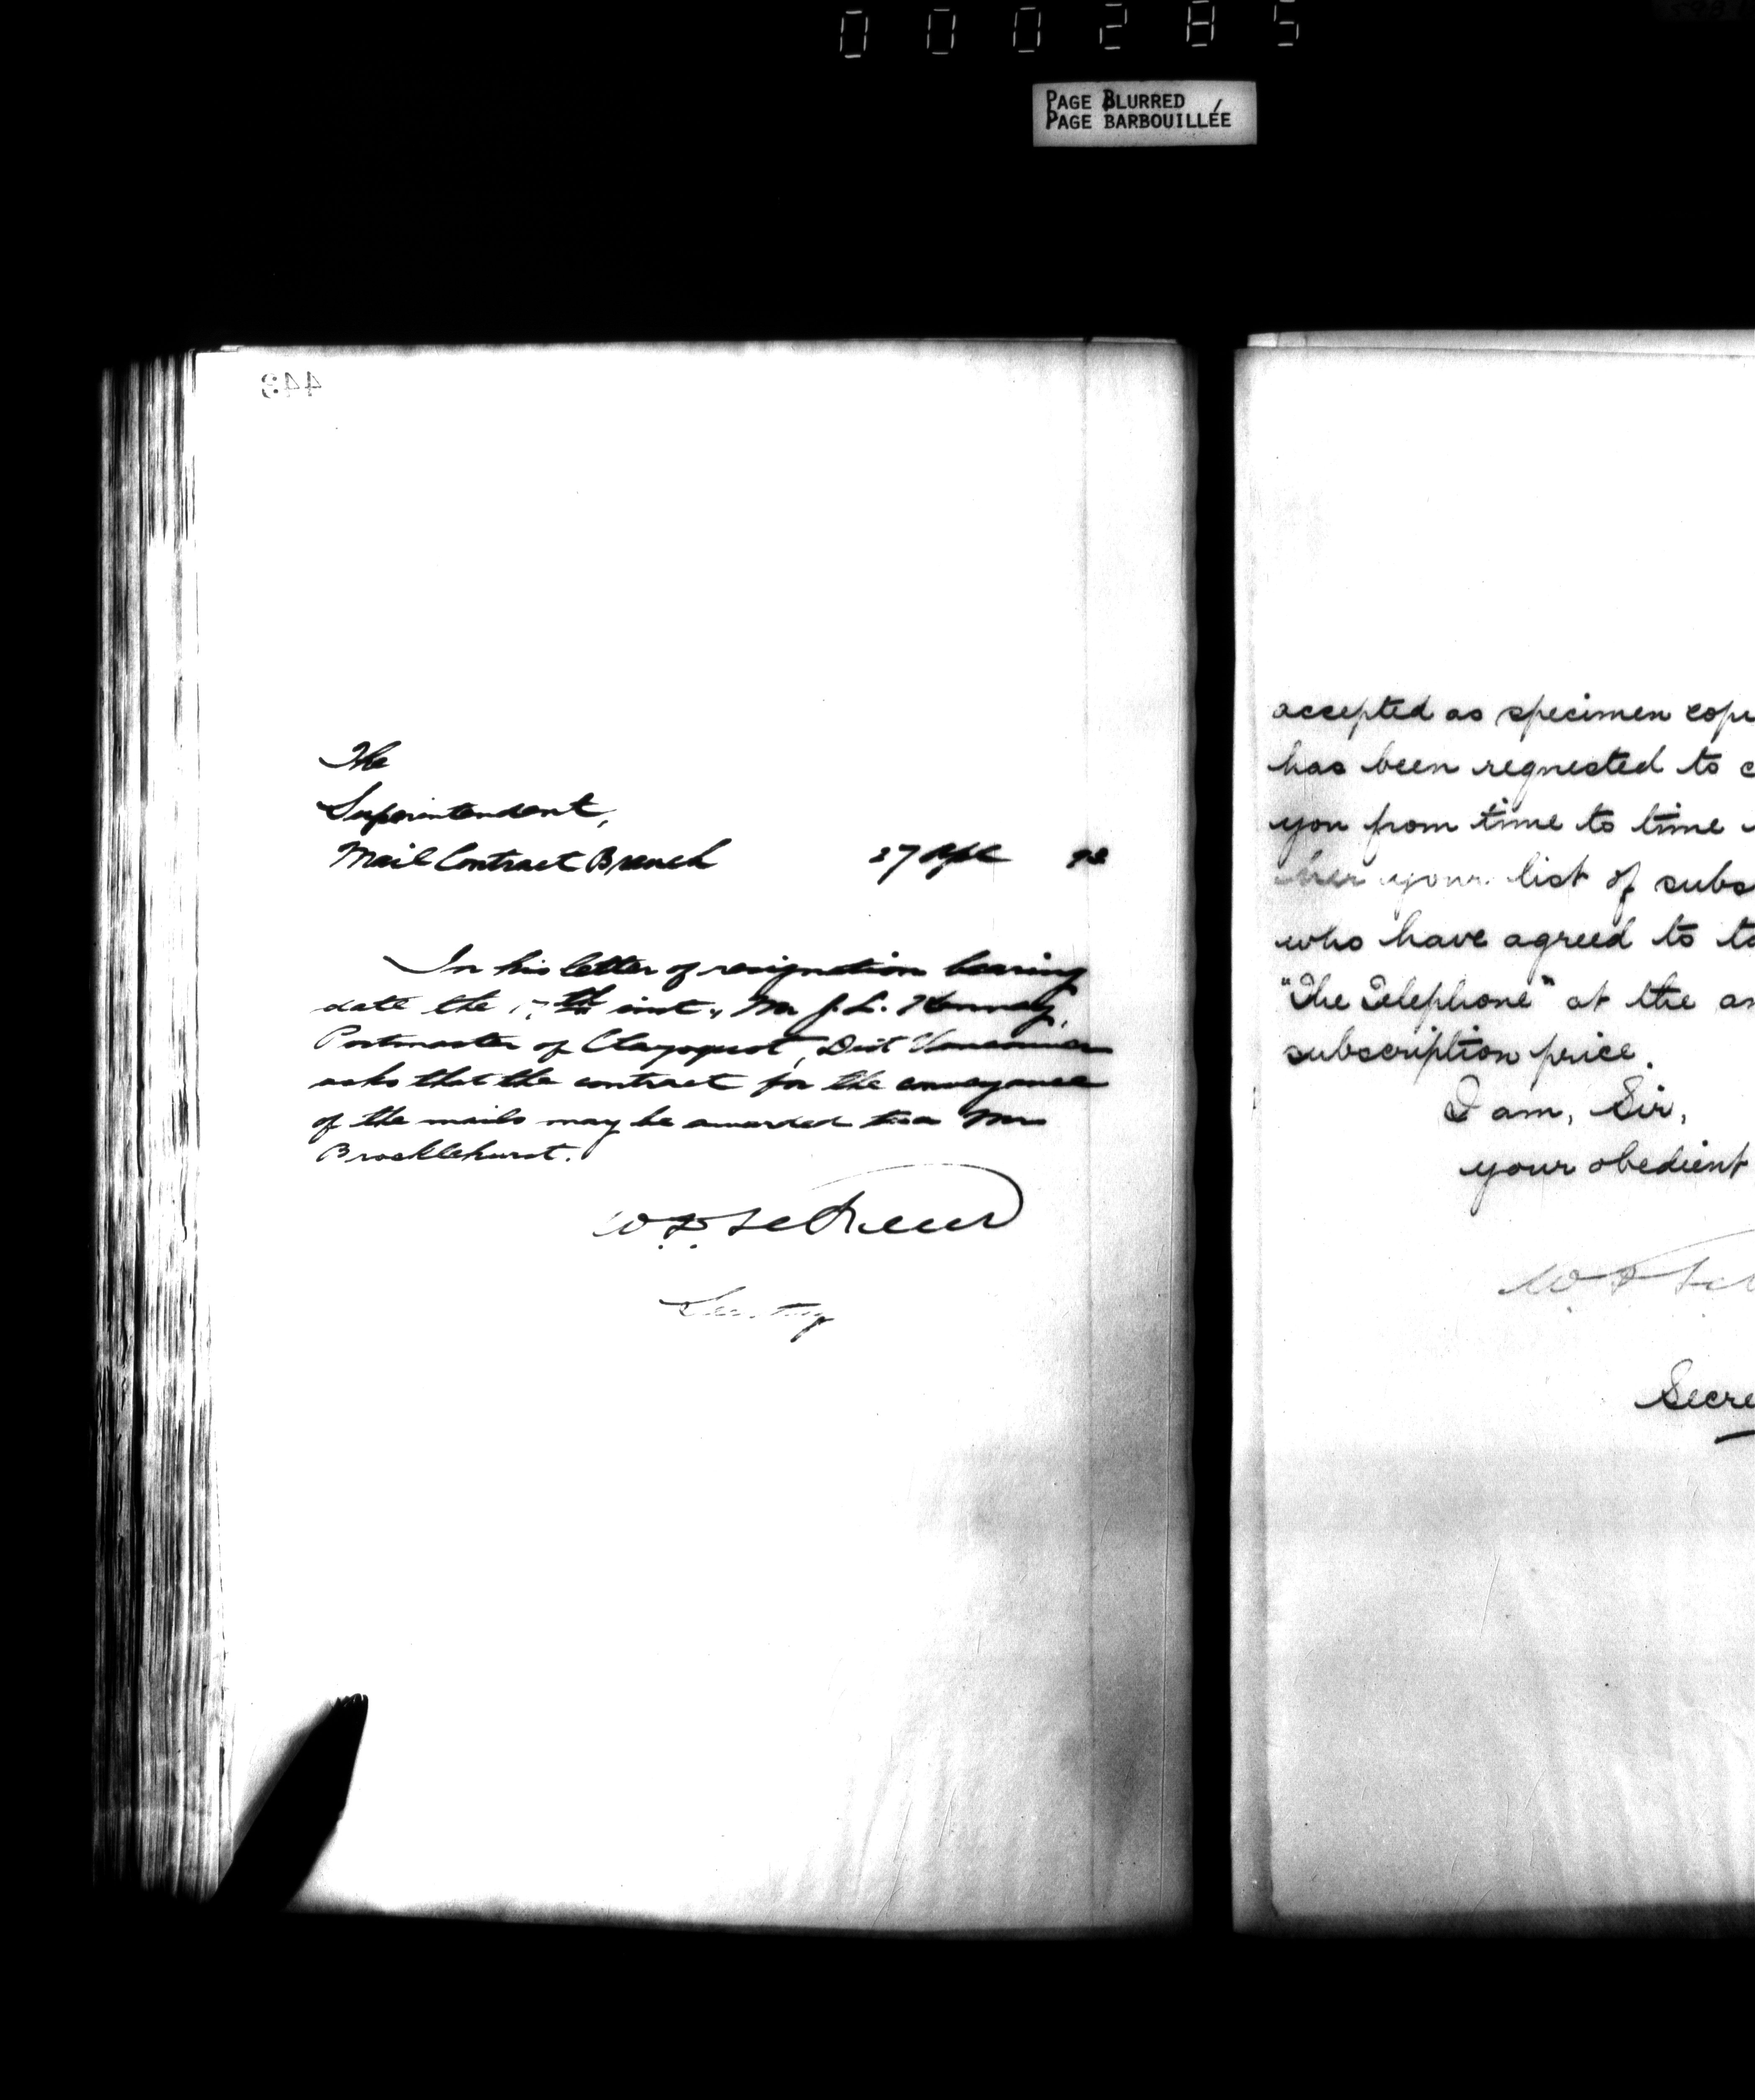 000285
PAGE BLURRED
PAGE BARBOUILLÉE
443
The
Superintendent,
Mail Contract Branch 27 Apl 98
In his letter of resignation bearing
date the th inst., Mr J. L.
Postmaster of Clayoquot, Dist Vancouver
asks that the contract for the conveyance
of the mails may be awarded to a Mr
Brocklehurst.
W. D.
Secretary
accepted as specimen
has been requested to
you from time to time
your list of
who have agreed to
"The Telephone" at the
subscription price.
I am, Sir,
your obedient